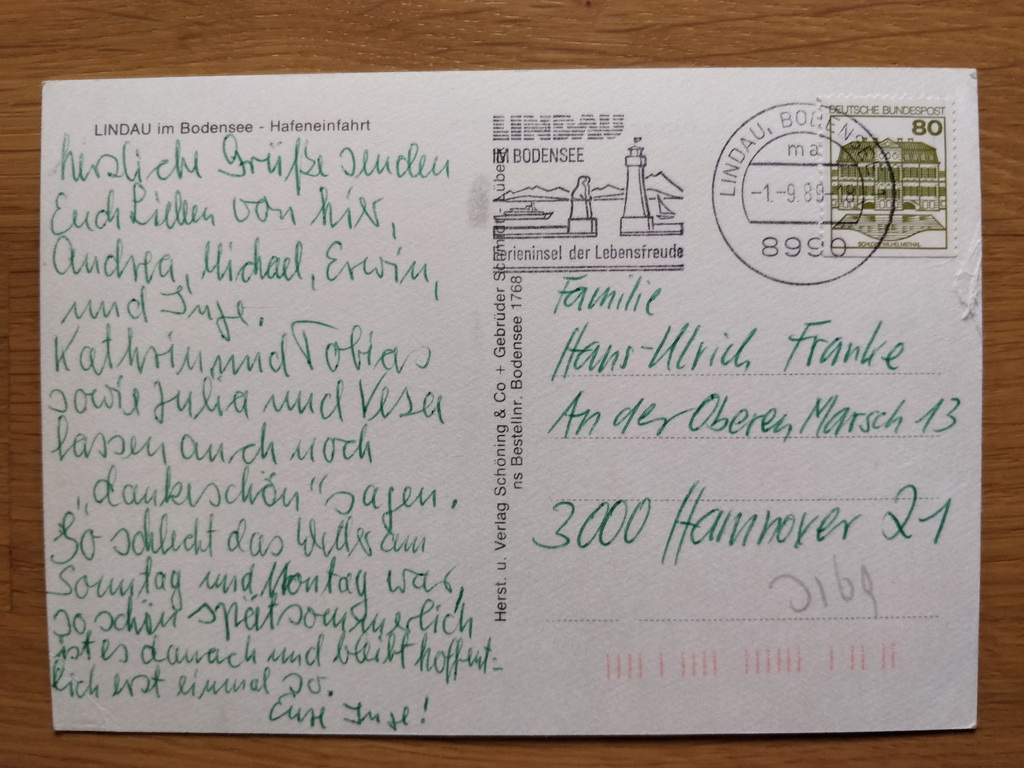 LINDAU im Bodensee - Hafeneinfahrt
herzliche Grüße senden
Euch Lieben von hier,
Andrea, Michael, Erwin,
und Inge.
Kathrin und Tobias
sowie Julia und Vesa
lassen auch noch
„dankeschön" sagen.
So schlecht das Wetter am
Sonntag und Montag war,
so schön spätsommerlich
ist es danach und bleibt hoffent=
lich erst einmal so.
Eure Inge!
Herst. u. Verlag Schöning & Co + Gebrüder Schmidt, Lübeck
ns Bestellnr. Bodensee 1768
LINDAU
IM BODENSEE
Ferieninsel der Lebensfreude
LINDAU, BODENSEE
ma
-1.-9.89-18
8990
DEUTSCHE BUNDESPOST
80
SCHLOSS WILHELMSTHAL
Familie
Hans-Ulrich Franke
An der Oberen Marsch 13
3000 Hannover 21